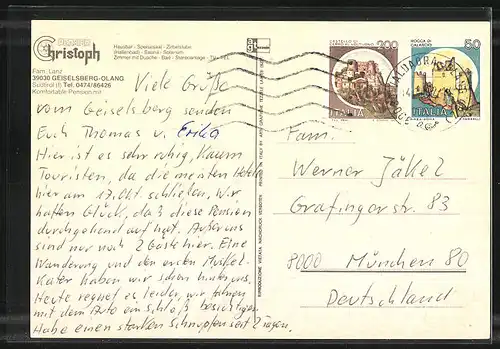 PENSION
Christoph
Hausbar - Speisesaal - Zirbelstube
(Hallenbad) - Sauna - Solarium
Zimmer mit Dusche - Bad - Stereoanlage - TV - Tel.
Fam. Lanz
39030 GEISELSBERG-OLANG
Südtirol (I) Tel. 0474/86426
Komfortable Pension mit
Viele Grüße
vom Geiselsberg senden
Euch Thomas u. Erika
Hier ist es sehr ruhig, kaum
Touristen, da die meisten Hotels
hier am 17. Okt. schließen. Wir
hatten Glück, daß diese Pension
durchgehend auf hat. Außer uns
sind nur noch 2 Gäste hier. Eine
Wanderung und den ersten Muskel-
Kater haben wir schon hinter uns.
Heute regnet es leider, wir fahren
mit dem Auto ein Schloß besichtigen.
Habe einen starken Schnupfen seit 2 Tagen.
RIPRODUZIONE VIETATA - NACHDRUCK VERBOTEN
CASTELLO DI
200
ITALIA
ROCCA DI
CALASCIO
50
ITALIA
Fam.
Werner Jäkel
Grafingerstr. 83
8000 München 80
Deutschland